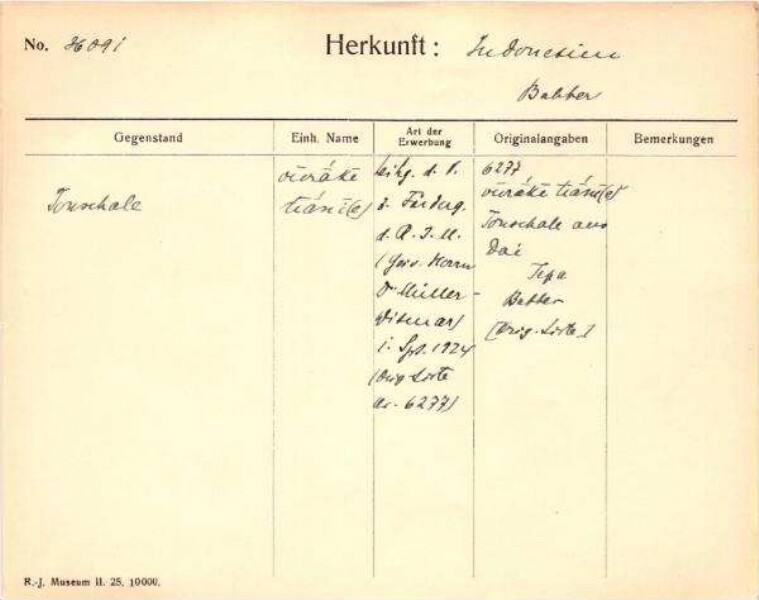 No. 36091
Herkunft: Indonesien
Babber
Gegenstand
Einh. Name
Art der Erwerbung
Originalangaben
Bemerkungen
Tonschale
tiáni(e)
Leihg. d. V.
z. Förderg.
d. R. J. M.
(Herrn
Dr Müller-
Wismar)
i. Spt. 1924
(Orig-Liste
Nr. 6277)
6277
tiáni(e)
Tonschale aus
Dai
Tepa
Babber
(Orig.-Liste.)
R.-J. Museum II. 25. 10000.